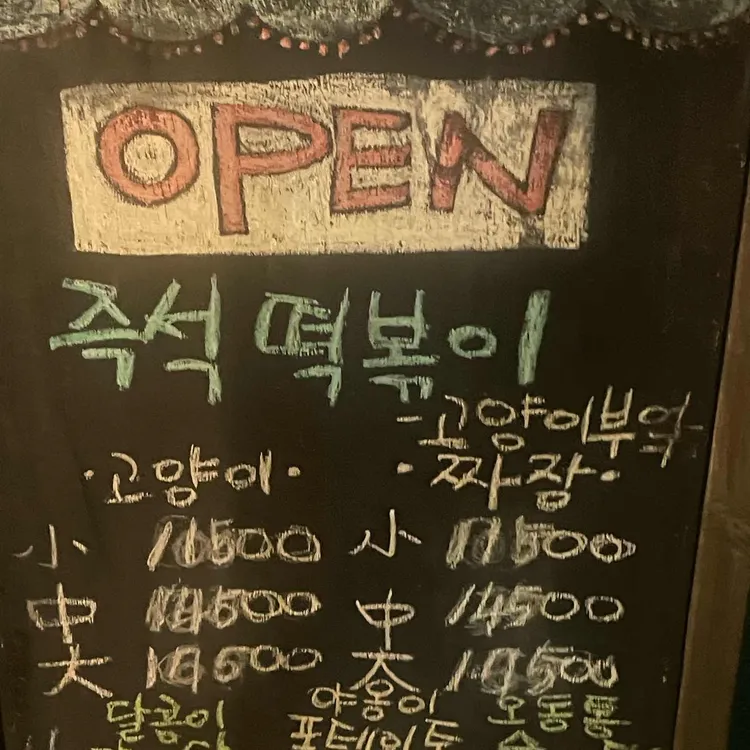 OPEN
즉석 떡볶이
-고양이부엌-
·고양이· ·짜장·
小 小 11500
中 14500 中 14500
大 大
달콤이 야옹이 오동통
포테이토